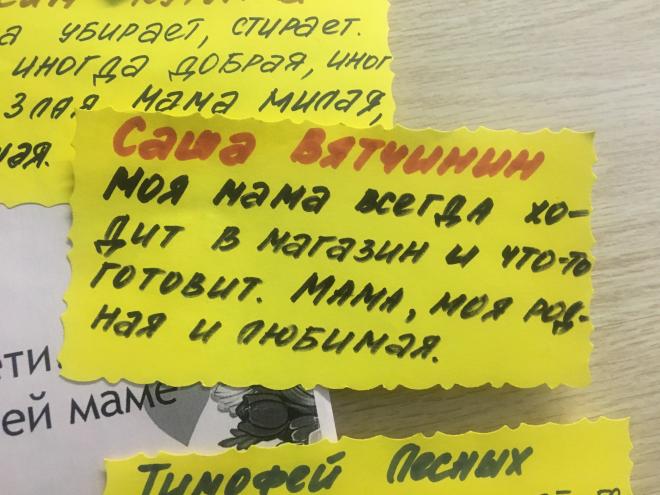 а убирает, стирает.
иногда добрая, иног
злая. Мама милая,
ная.
Саша Вятчинин
Моя мама всегда хо-
дит в магазин и что-то
готовит. Мама, моя род-
ная и любимая.
ети
ей маме
Тимофей Лесных